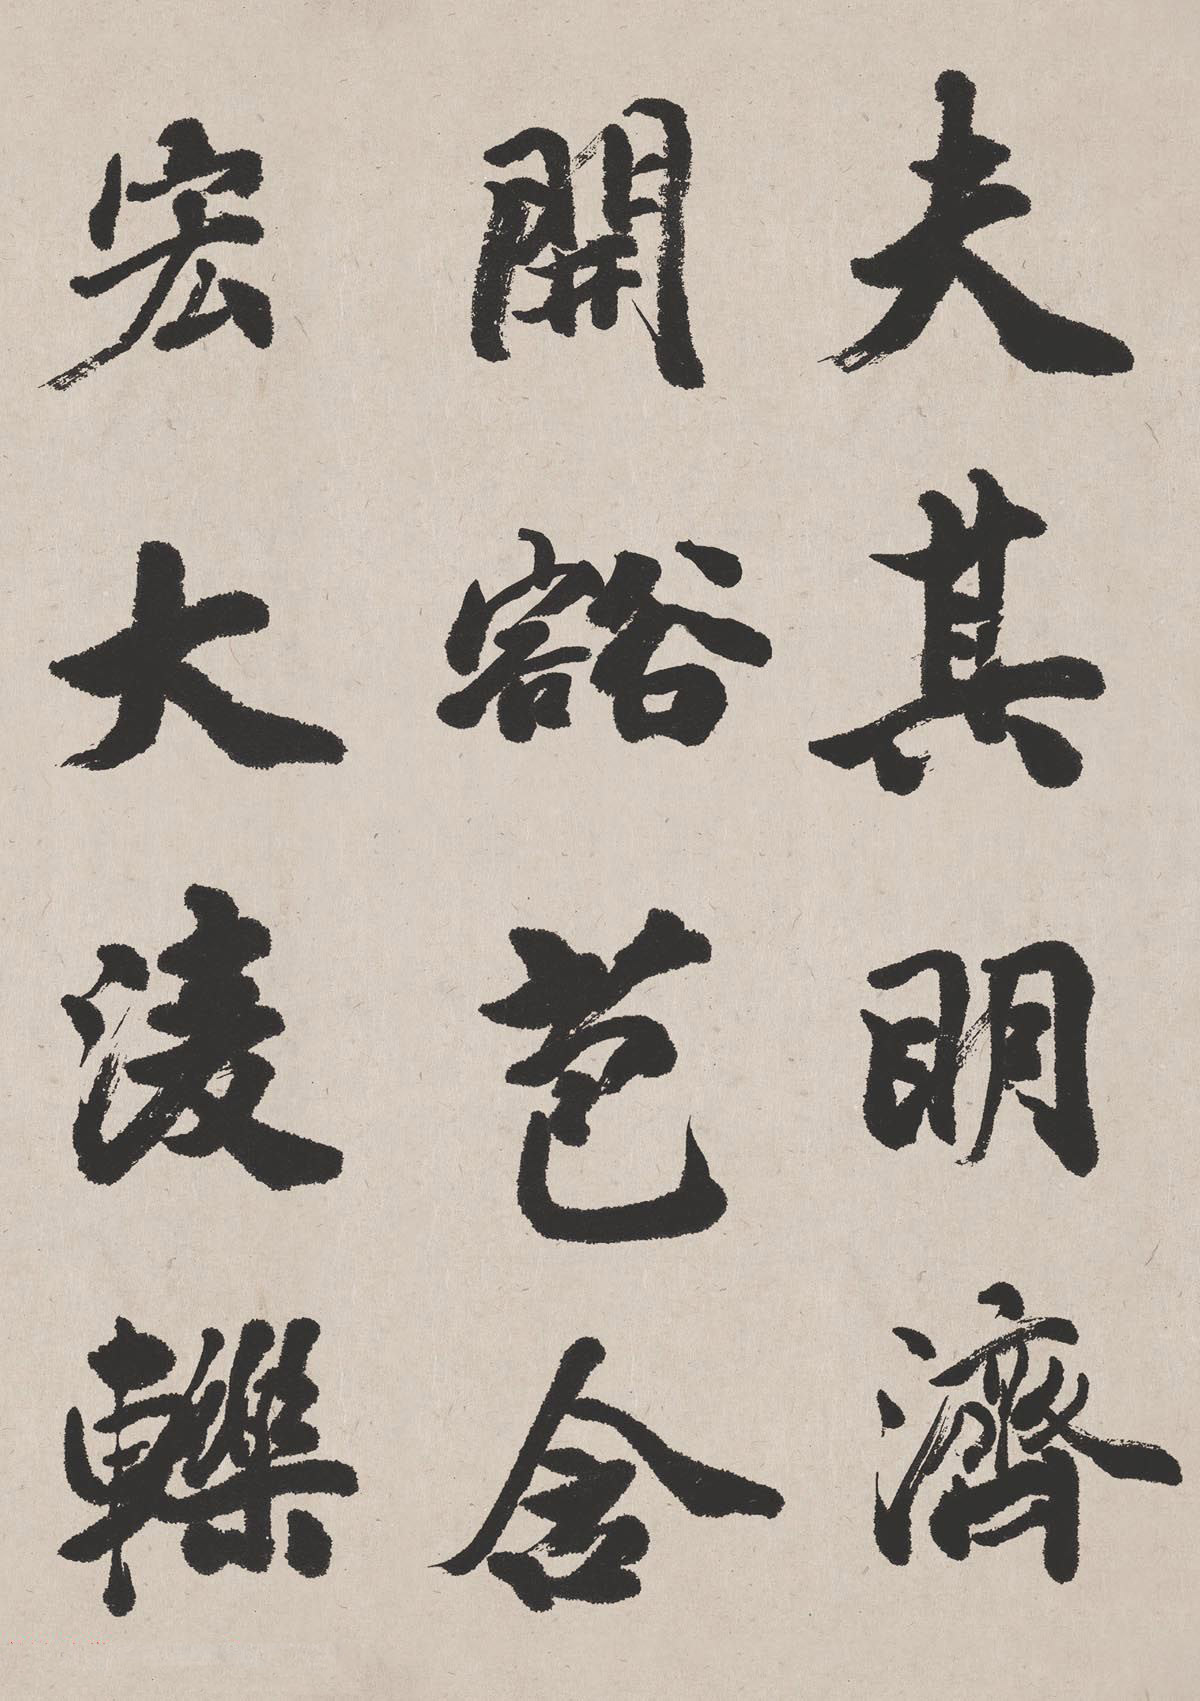 夫其明濟
開豁苞含
宏大淩轢